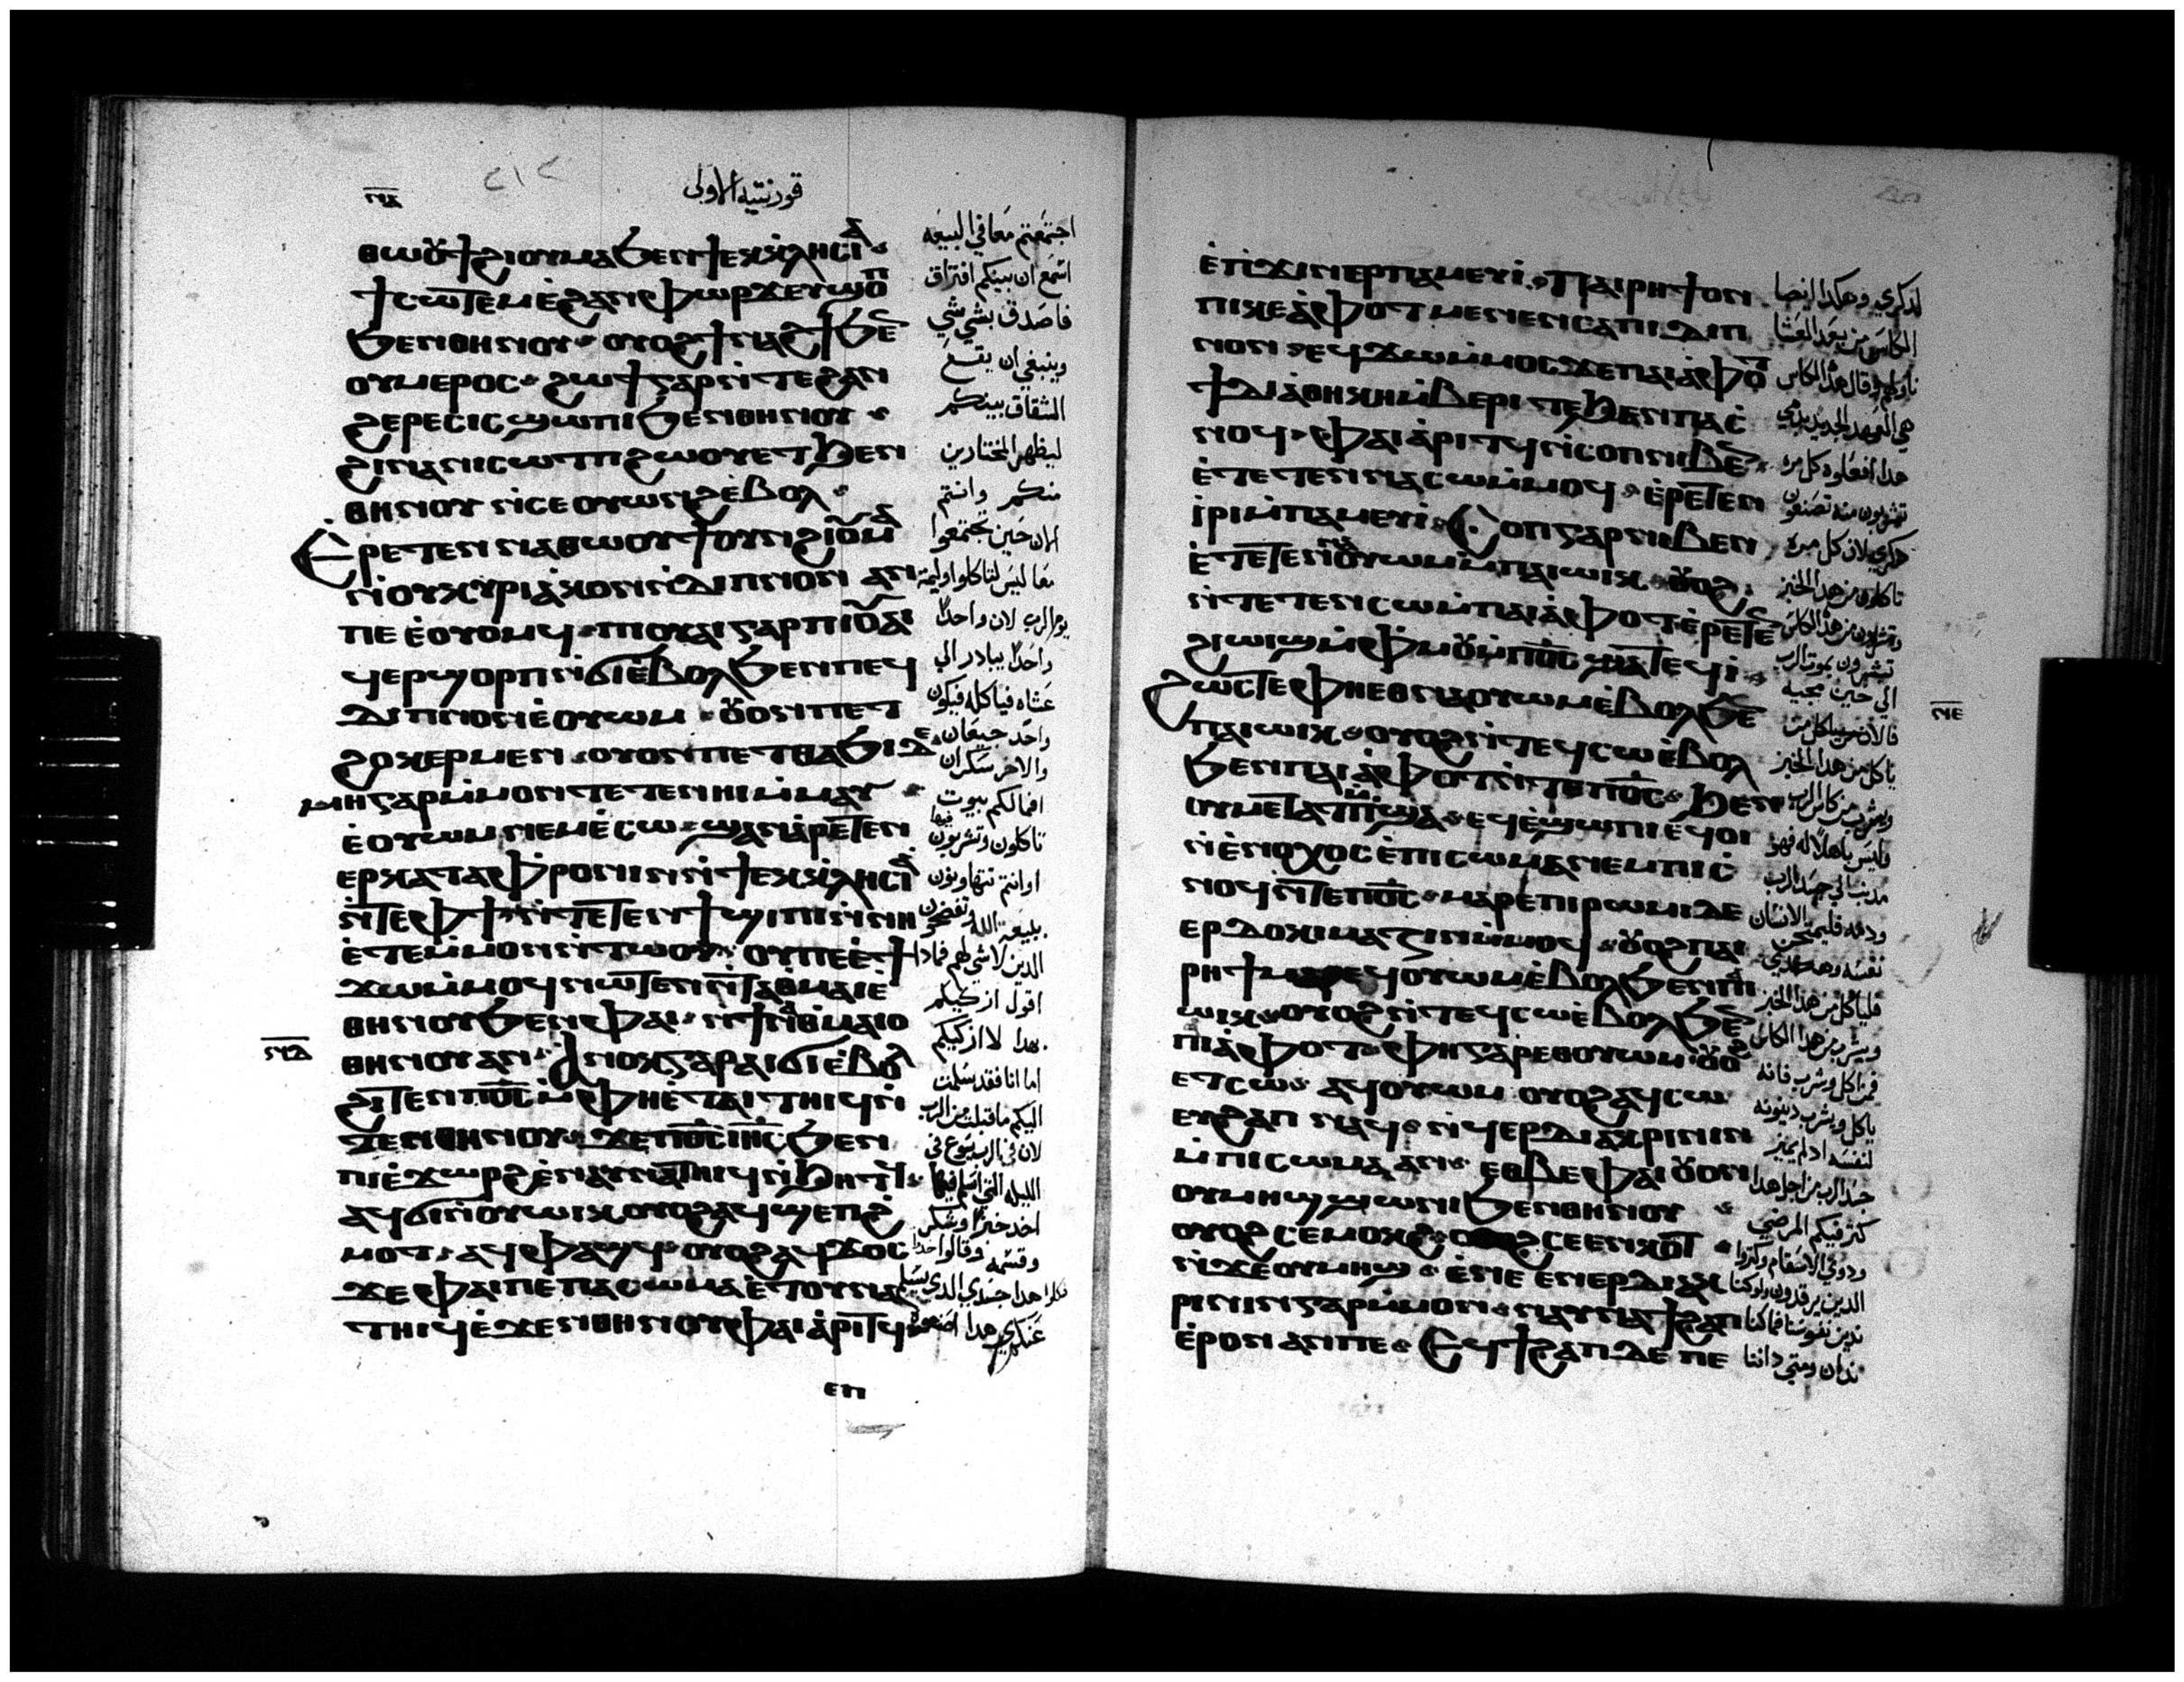 ⲛⲇ
٢١٢
قورنتيه الاولى
ⲑⲱⲟⲩϯ ϩⲓⲟⲩⲙⲁ ϧⲉⲛ ϯⲉⲕⲕⲗⲏⲥⲓⲁ
ϯⲥⲱⲧⲉⲙ ⲉ̇ϩⲁⲛⲫⲱⲣϫ ⲉⲩϣⲟⲡ
ϧⲉⲛ ⲑⲏⲛⲟⲩ ⲟⲩⲟϩ ϯⲛⲁϩϯ ϧⲉⲛ
ⲟⲩⲙⲉⲣⲟⲥ ϩⲱϯ ⲅⲁⲣ ⲛ̇ⲧⲉ ϩⲁⲛ
ϩⲉⲣⲉⲥⲓⲥ ϣⲱⲡⲓ ϧⲉⲛ ⲑⲏⲛⲟⲩ
ϩⲓⲛⲁ ⲛⲓⲥⲱⲧⲡ ϩⲱⲟⲩ ⲉⲧϧⲉⲛ
ⲑⲏⲛⲟⲩ ⲛ̇ⲥⲉⲟⲩⲱⲛϩ ⲉ̇ⲃⲟⲗ
Ⲉⲣⲉⲧⲉⲛ ⲛⲁⲑⲱⲟⲩϯ ⲟⲩⲛ ϩⲓⲟⲩⲙⲁ
ⲛ̇ⲟⲩⲕⲩⲣⲓⲁⲕⲟⲛ ⲛ̇ⲇⲓⲡⲛⲟⲛ ⲁⲛ
ⲡⲉ ⲉ̇ⲟⲩⲟⲙϥ ⲡⲓⲟⲩⲁⲓ ⲅⲁⲣ ⲡⲓⲟⲩⲁⲓ
ϥⲉⲣϣⲟⲣⲡ ⲛ̇ϭⲓ ⲉ̇ⲃⲟⲗ ϧⲉⲛ ⲡⲉϥ
ⲇⲓⲡⲛⲟⲛ ⲉ̇ⲟⲩⲱⲙ ⲟⲩⲟⲛ ⲡⲉⲧ
ϩⲟⲕⲉⲣ ⲙⲉⲛ ⲟⲩⲟⲛ ⲡⲉⲧⲑⲁϧⲓ ⲇⲉ
ⲙⲏ ⲅⲁⲣ ⲙ̇ⲙⲟⲛⲧⲉⲧⲉⲛ ⲏⲓ ⲙ̇ⲙⲁⲩ
ⲉ̇ⲟⲩⲱⲙ ⲛⲉⲙ ⲉ̇ⲥⲱ ϣⲁⲛ ⲁ̇ⲣⲉⲧⲉⲛ
ⲉⲣⲕⲁⲧⲁⲫⲣⲟⲛⲓⲛ ⲛ̇ϯⲉⲕⲕⲗⲏⲥⲓⲁ
ⲛ̇ⲧⲉ ⲫϯ ⲛ̇ⲧⲉⲧⲉⲛϯϣⲓⲡⲓ ⲛ̇ⲛⲏ
ⲉ̇ⲧⲉ ⲙ̇ⲙⲟⲛ ⲛ̇ⲧⲱⲟⲩ ⲟⲩ ⲡⲉ ⲉ̇ϯ
ϫⲱ ⲙ̇ⲙⲟϥ ⲛⲱⲧⲉⲛ ⲛ̇ⲧⲁⲑⲙⲁⲓⲉ̇
ⲑⲏⲛⲟⲩ ϧⲉⲛ ⲫⲁⲓ ⲛϯⲛⲁⲑⲙⲁⲓⲟ
ⲛⲇ
ⲑⲏⲛⲟⲩ ⲁⲛ Ⲁⲛⲟⲕ ⲅⲁⲣ ⲁⲓϭⲓ ⲉ̇ⲃⲟⲗ
ϩⲓⲧⲉⲛ ⲡⲟ̅ⲥ̅ ⲙ̇ⲫⲏ ⲉ̇ⲧⲁⲓⲧⲏⲓϥ ⲛ
ϫⲉⲛ ⲑⲏⲛⲟⲩ ϫⲉ ⲡⲟ̅ⲥ̅ ⲓⲏ̅ⲥ̅ ϧⲉⲛ
ⲡⲓⲉ̇ϫⲱⲣϩ ⲉ̇ⲛⲁⲩⲛⲁⲧⲏⲓϥ ⲛ̇ϧⲏⲧϥ
ⲁϥϭⲓ ⲛ̇ⲟⲩⲱⲓⲕ ⲟⲩⲟϩ ⲁϥϣⲉⲡϩ
ⲙⲟⲧ ⲁϥⲫⲁϣϥ ⲟⲩⲟϩ ⲁϥϫⲟⲥ
ϫⲉ ⲫⲁⲓ ⲡⲉ ⲡⲁⲥⲱⲙⲁ ⲉ̇ⲧⲟⲩⲛⲁ
ⲧⲏⲓϥ ⲉ̇ϫⲉⲛ ⲑⲏⲛⲟⲩ ⲫⲁⲓ ⲁ̇ⲣⲓⲧϥ
ⲉⲡ
اجتمعتم معا في البيعه
اسمع ان بينكم افتراق
فاصدق بشي شي
وينبغي ان يقع
الشقاق بينكم
ليظهر المختارين
منكم وانتم
الان حين تجتمعوا
معا ليس لتاكلوا وليمة
يوم الرب لان واحدا
واحدا يبادر الي
عشاه فياكله فيكون
واحد جيعان
والاخر سكران
افما لكم بيوت
تاكلون فيها وتشربون
او انتم تتهاونون
ببيعة الله وتفضحون
الدين لاشي لهم فمادا
اقول ازكيكم
بهدا لا ازكيكم
اما انا فقد سلمت
اليكم ماقبلت من الرب
لان في الرب يسوع في
الليله التي اسلم فيها
اخد خبزا وشكر
وقسمه وقال خدوا
كلوا هدا جسدي الدي يسلم
عنكم هدا اصنعوه
ⲉ̇ⲡϫⲓⲛⲉⲣⲡⲁⲙⲉⲩⲓ̇ Ⲡⲁⲓⲣⲏϯ ⲟⲛ
ⲡⲓⲕⲉⲁ̇ⲫⲟⲧ ⲙⲉⲛⲉⲛⲥⲁ ⲡⲓⲇⲓⲡ
ⲛⲟⲛ ⲉϥϫⲱ ⲙ̇ⲙⲟⲥ ϫⲉ ⲡⲁⲓⲁ̇ⲫⲟⲧ
ϯⲇⲓⲁ̇ⲑⲏⲕⲏ ⲙ̇ⲃⲉⲣⲓ ⲧⲉ ϧⲉⲛ ⲡⲁⲥ̇
ⲛⲟϥ ⲫⲁⲓ ⲁ̇ⲣⲓⲧϥ ⲛ̇ⲥⲟⲡ ⲛⲓⲃⲉⲛ
ⲉ̇ⲧⲉⲧⲉⲛⲛⲁⲥⲱ ⲙ̇ⲙⲟϥ ⲉ̇ⲣⲉⲧⲉⲛ
ⲓ̇ⲣⲓ ⲙ̇ⲡⲁⲙⲉⲩⲓ̇ Ⲥⲟⲡ ⲅⲁⲣ ⲛⲓⲃⲉⲛ
ⲉ̇ⲧⲉⲧⲉⲛⲛⲁⲟⲩⲱⲙ ⲙ̇ⲡⲁⲓⲱⲓⲕ ⲟⲩⲟϩ
ⲛ̇ⲧⲉⲧⲉⲛⲥⲱ ⲙ̇ⲡⲁⲓⲁ̇ⲫⲟⲧ ⲉ̇ⲣⲉⲧⲉⲛ
ϩⲓⲱⲓϣ ⲙ̇ⲫⲙⲟⲩ ⲙ̇ⲡⲟ̅ⲥ̅ ϣⲁⲧⲉϥⲓ̇
Ϩⲱⲥⲧⲉ ⲫⲏ ⲉⲑⲛⲁⲟⲩⲱⲙ ⲉ̇ⲃⲟⲗ ϧⲉⲛ
ⲛⲉ
ⲡⲁⲓⲱⲓⲕ ⲟⲩⲟϩ ⲛ̇ⲧⲉϥⲥⲱ ⲉ̇ⲃⲟⲗ
ϧⲉⲛ ⲡⲁⲓⲁ̇ⲫⲟⲧ ⲛ̇ⲧⲉ ⲡⲟ̅ⲥ̅ ϧⲉⲛ
ⲟⲩⲙⲉⲧⲁⲧⲙ̇ⲡϣⲁ ⲉϥⲉ̇ϣⲱⲡⲓ ⲉϥⲟⲓ
ⲛ̇ⲉ̇ⲛⲟⲭⲟⲥ ⲉ̇ⲡⲓⲥⲱⲙⲁ ⲛⲉⲙ ⲡⲓⲥ̇
ⲛⲟϥ ⲛ̇ⲧⲉ ⲡⲟ̅ⲥ̅ ⲙⲁⲣⲉ ⲡⲓⲣⲱⲙⲓ ⲇⲉ
ⲉⲣⲇⲟⲕⲓⲙⲁⲍⲓⲛ ⲙ̇ⲙⲟϥ ⲟⲩⲟϩ ⲡⲁⲓ
ⲣⲏϯ ⲙⲁⲣⲉϥⲟⲩⲱⲙ ⲉ̇ⲃⲟⲗ ϧⲉⲛ ⲡⲁⲓ
ⲱⲓⲕ ⲟⲩⲟϩ ⲛ̇ⲧⲉϥⲥⲱ ⲉ̇ⲃⲟⲗ ϧⲉⲛ
ⲡⲓⲁ̇ⲫⲟⲧ ⲫⲏ ⲅⲁⲣ ⲉⲑⲟⲩⲱⲙ ⲟⲩⲟϩ
ⲉⲧⲥⲱ ⲁϥⲟⲩⲱⲙ ⲟⲩⲟϩ ⲁϥⲥⲱ
ⲉⲩϩⲁⲡ ⲛⲁϥ ⲛ̇ϥⲉⲣⲇⲓⲁⲕⲣⲓⲛⲓⲛ
ⲙ̇ⲡⲓⲥⲱⲙⲁ ⲁⲛ ⲉⲑⲃⲉ ⲫⲁⲓ ⲟⲩⲟⲛ
ⲟⲩⲙⲏϣ ϣⲱⲛⲓ ϧⲉⲛ ⲑⲏⲛⲟⲩ
ⲟⲩⲟϩ ⲥⲉⲙⲟⲕϩ ⲥⲉⲉⲛⲕⲟⲧ
ⲛ̇ϫⲉ ⲟⲩⲙⲏϣ ⲉ̇ⲛⲉ ⲉⲛⲉⲣⲇⲓⲁⲕ
ⲣⲓⲛⲓⲛ ⲅⲁⲣ ⲙ̇ⲙⲟⲛ ⲛⲁⲩⲛⲁϯϩⲁⲡ
ⲉ̇ⲣⲟⲛ ⲁⲛ ⲡⲉ Ⲉⲩϯϩⲁⲡ ⲇⲉ ⲡⲉ
لدكري وهكدا ايضا
الكاس من بعد العشا
ناولهم وقال هدا الكاس
هي العهد الجديد بدمي
هدا افعلوه كل مره
تشربون منه تصنعون
دكري لان كل مره
تاكلون من هدا الخبز
وتشربون من هدا الكاس
تبشرون بموت الرب
الي حين مجيه
فالان من ياكل من
ياكل من هدا الخبز
ويشرب من كاس الرب
وليس باهلا له فهو
مدنب الي جسد الرب
ودمه فليمتحن الانسان
نفسه وهكدي
فلياكل من هدا الخبز
ويشرب من هدا الكاس
فمن اكل وشرب فانه
ياكل ويشرب دينونه
لنفسه ادلم يميز
جسد الرب من اجل هدا
كثر فيكم المرضي
ودوي الاسقام وكثروا
الدين يرقدون ولو كنا
ندين نفوسنا فما كنا
ندان ومتي داننا